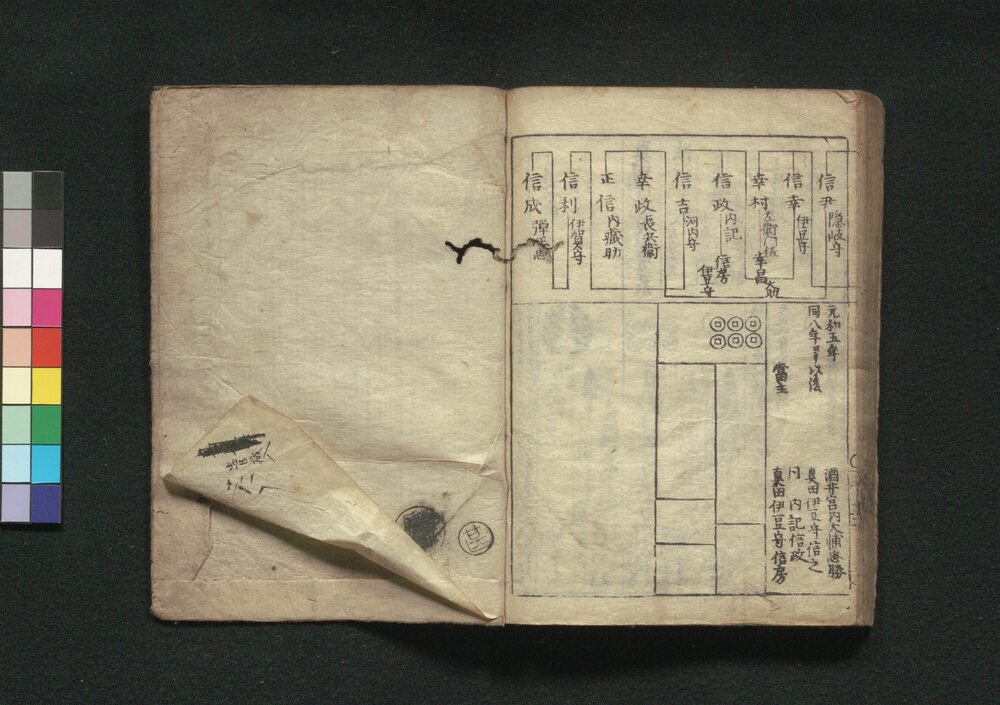 信尹 隠岐守
信幸 伊豆守
幸村 左衛門佐 幸昌 大助
信政 内記 信房 伊豆守
信吉 河内守
幸政 長兵衛
正信 内蔵助
信利 伊賀守
信成
元和五年
同八年 以後
當主
酒井宮内大輔忠勝
真田伊豆守信之
同 内記信政
真田伊豆守信房